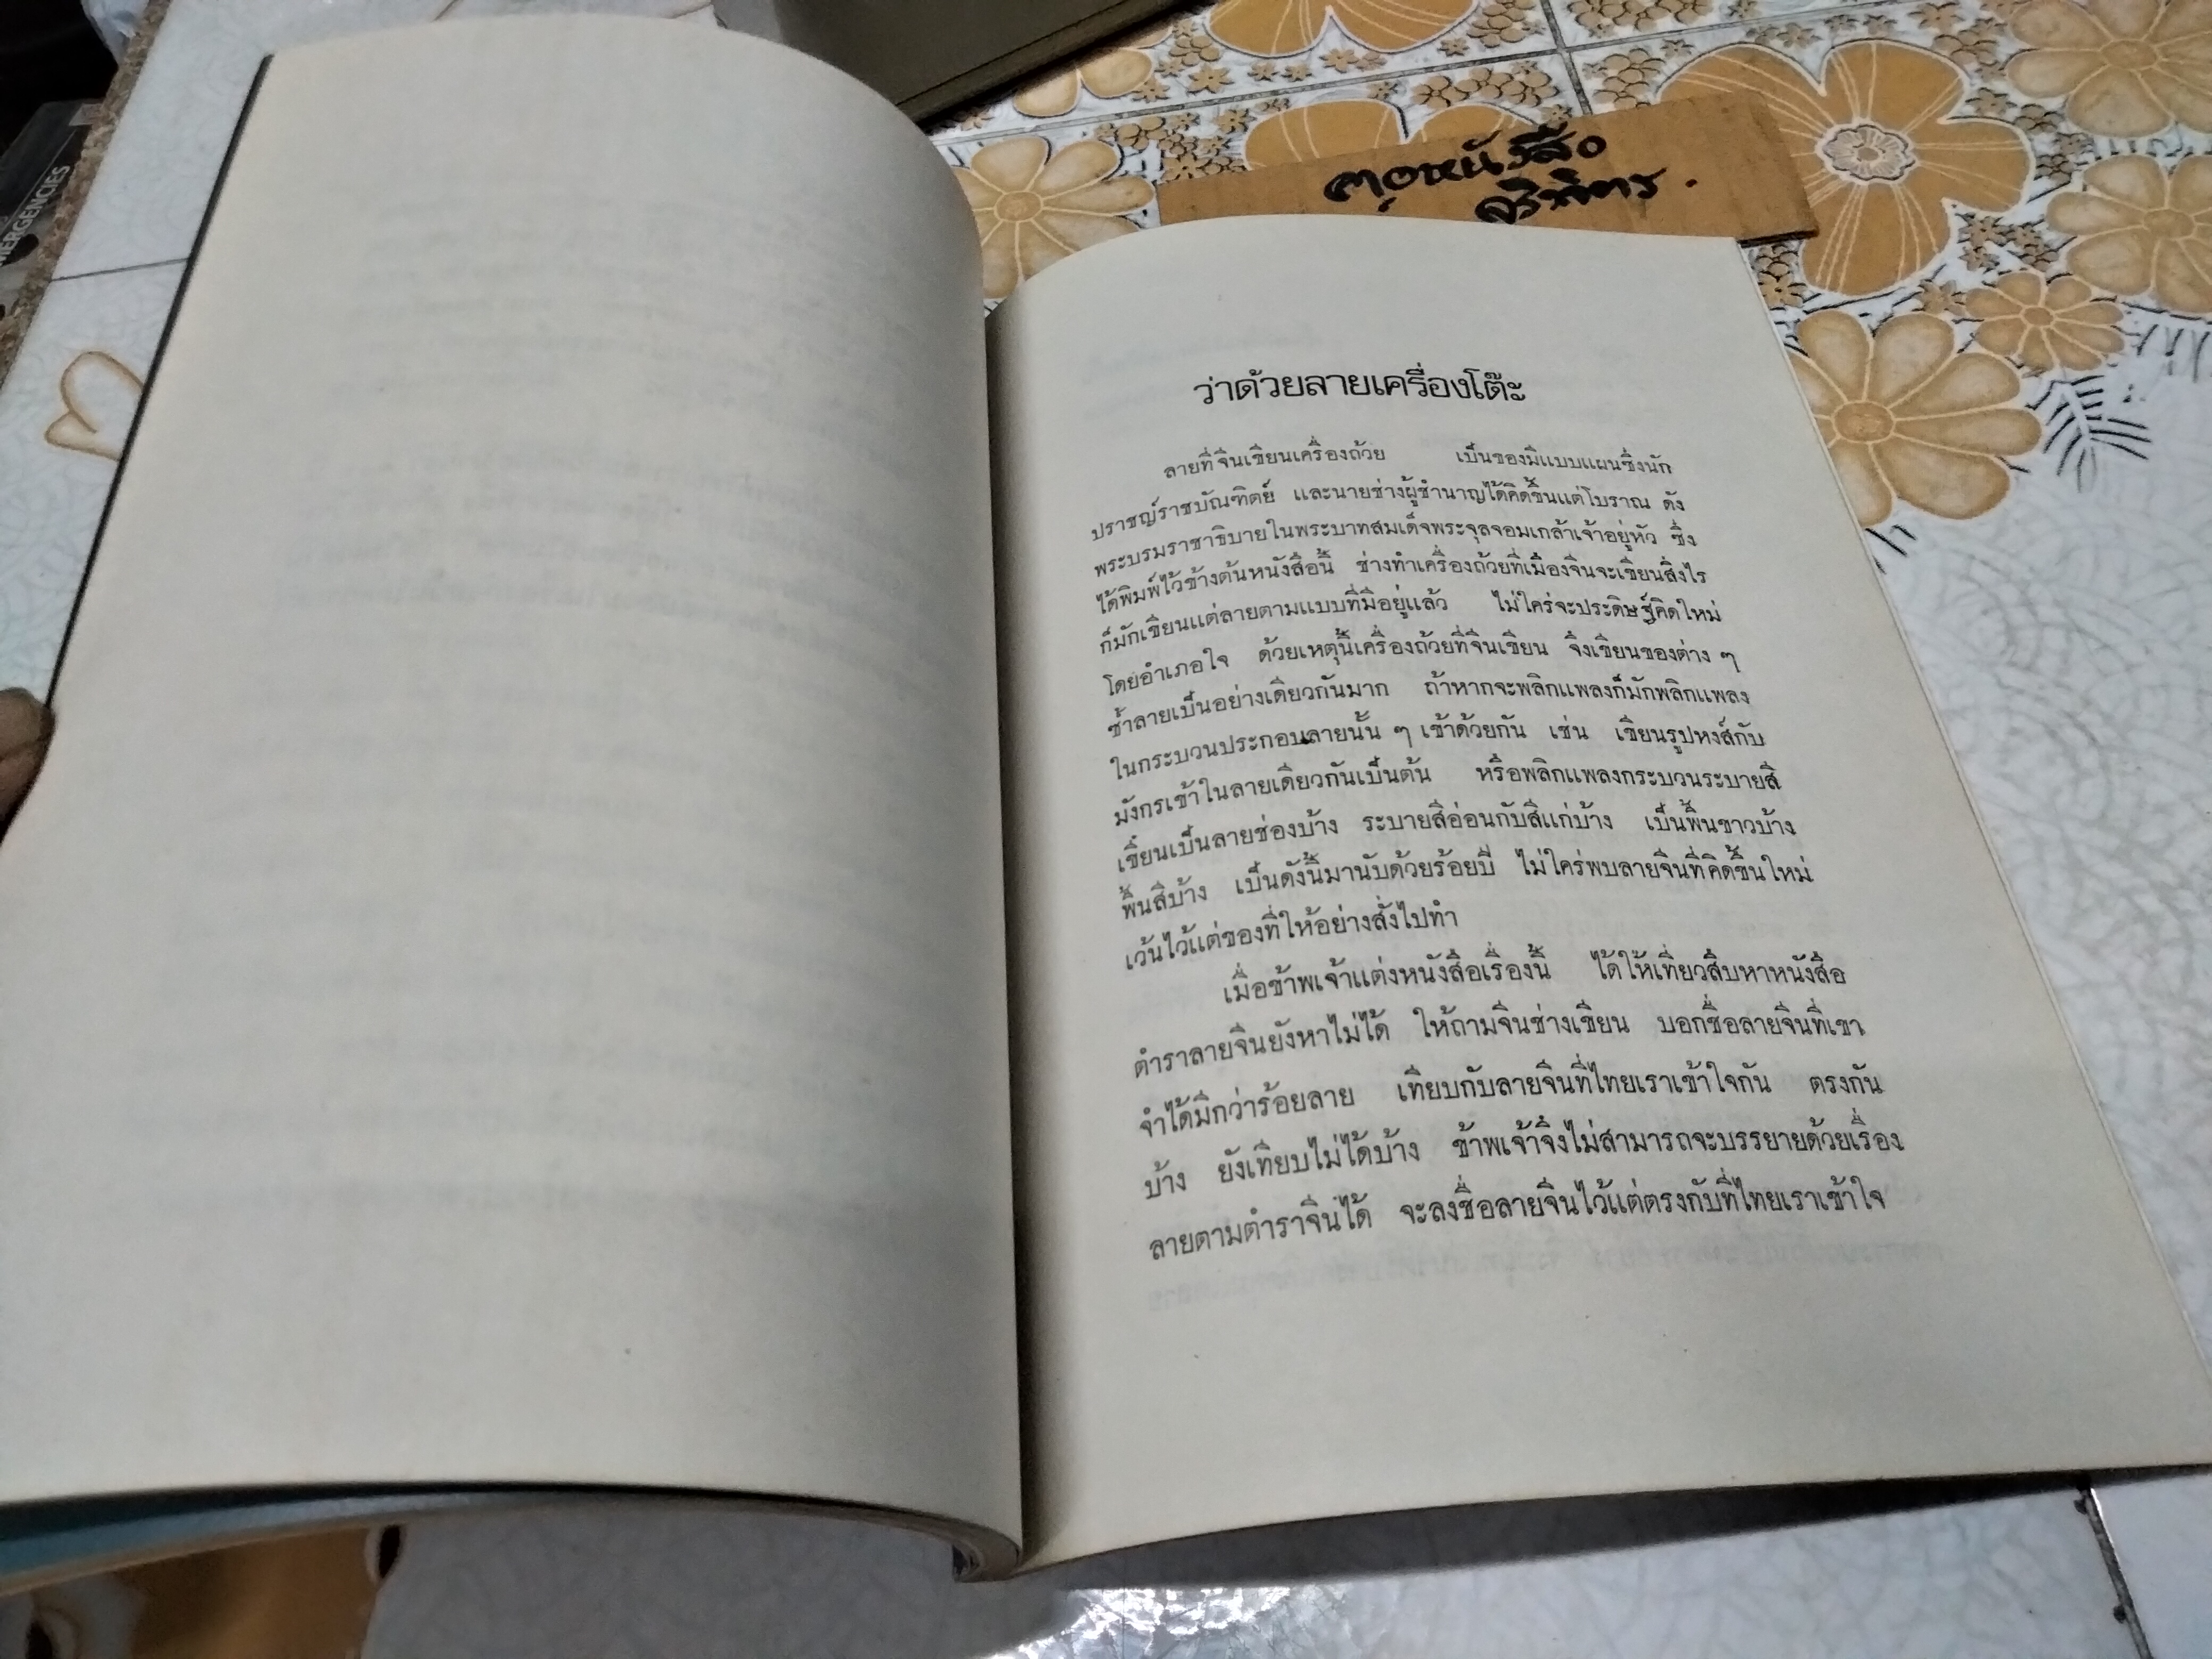 MERGENCIES
ตู้หนังสือ
ว่าด้วยลายเครื่องโต๊ะ
ลายที่จีนเขียนเครื่องถ้วย เป็นของมีแบบแผนซึ่งนัก
ปราชญ์ราชบัณฑิตย์ และนายช่างผู้ชำนาญได้คิดขึ้นแต่โบราณ ดัง
พระบรมราชาธิบายในพระบาทสมเด็จพระจุลจอมเกล้าเจ้าอยู่หัว ซึ่ง
ได้พิมพ์ไว้ข้างต้นหนังสือนี้ ช่างทำเครื่องถ้วยที่เมืองจีนจะเขียนสิ่งไร
ก็มักเขียนแต่ลายตามแบบที่มีอยู่แล้ว ไม่ใคร่จะประดิษฐ์คิดใหม่
โดยอำเภอใจ ด้วยเหตุนี้เครื่องถ้วยที่จีนเขียน จึงเขียนของต่าง ๆ
ซ้ำลายเป็นอย่างเดียวกันมาก ถ้าหากจะพลิกแพลงก็มักพลิกแพลง
ในกระบวนประกอบลายนั้น ๆ เข้าด้วยกัน เช่น เขียนรูปหงส์กับ
มังกรเข้าในลายเดียวกันเป็นต้น หรือพลิกแพลงกระบวนระบายสี
เขียนเป็นลายช่องบ้าง ระบายสีอ่อนกับสีแก่บ้าง เป็นพื้นขาวบ้าง
พื้นสีบ้าง เป็นดังนี้มานับด้วยร้อยปี ไม่ใคร่พบลายจีนที่คิดขึ้นใหม่
เว้นไว้แต่ของที่ให้อย่างสั่งไปทำ
เมื่อข้าพเจ้าแต่งหนังสือเรื่องนี้ ได้ให้เที่ยวสืบหาหนังสือ
ตำราลายจีนยังหาไม่ได้ ให้ถามจีนช่างเขียน บอกชื่อลายจีนที่เขา
จำได้มีกว่าร้อยลาย เทียบกับลายจีนที่ไทยเราเข้าใจกัน ตรงกัน
บ้าง ยังเทียบไม่ได้บ้าง ข้าพเจ้าจึงไม่สามารถจะบรรยายด้วยเรื่อง
ลายตามตำราจีนได้ จะลงชื่อลายจีนไว้แต่ตรงกับที่ไทยเราเข้าใจ